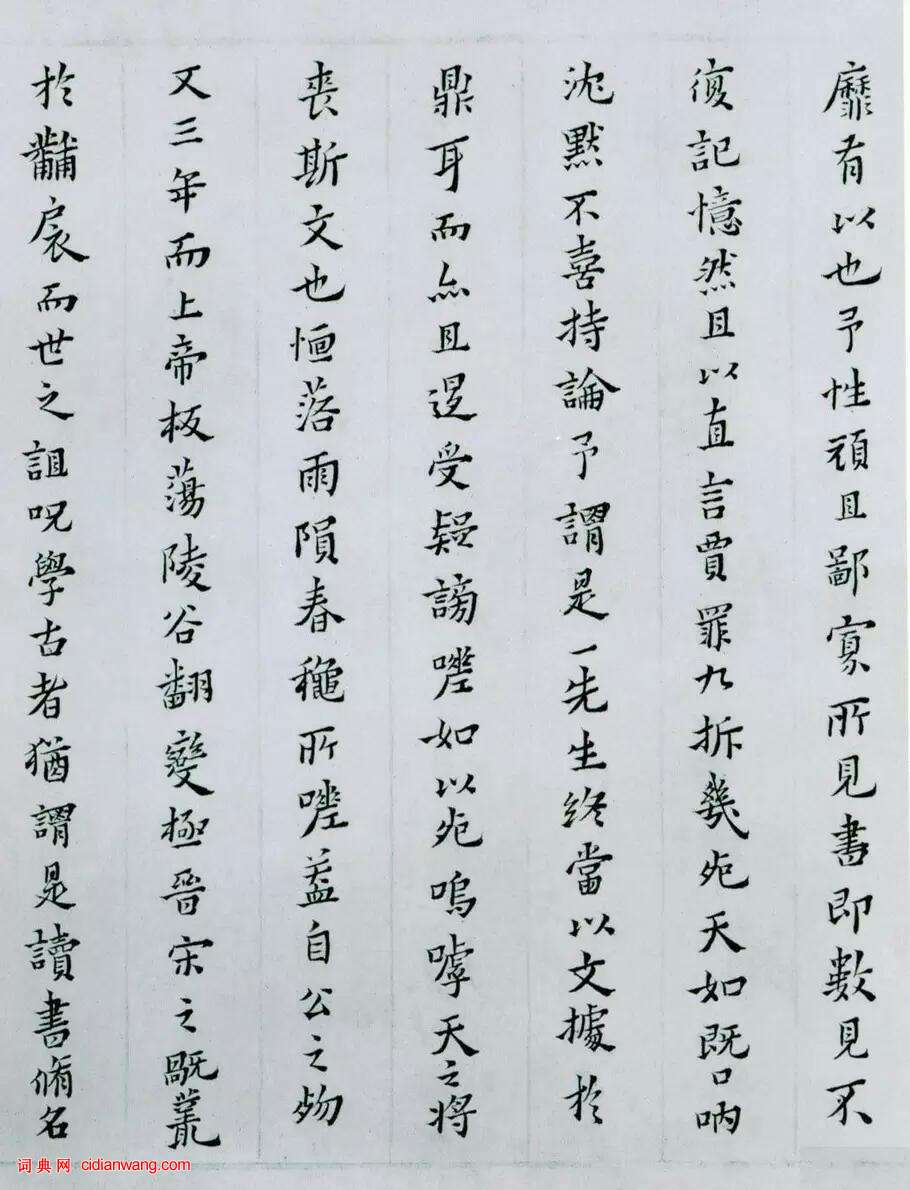 靡有以也予性頑且鄙寡所見書即數見不
復記憶然且以直言賈罪九拆幾死天如既口吶
沈默不喜持論予謂是一先生終當以文據於
鼎耳而亦且受疑謗嗟如以死嗚嘑天之將
喪斯文也落雨隕春龝所嗟蓋自公之歾
又三年而上帝板蕩陵谷翻變極晉宋之
於黼扆而世之詛呪學古者猶謂是讀書脩名
词典网 cidianwang.com